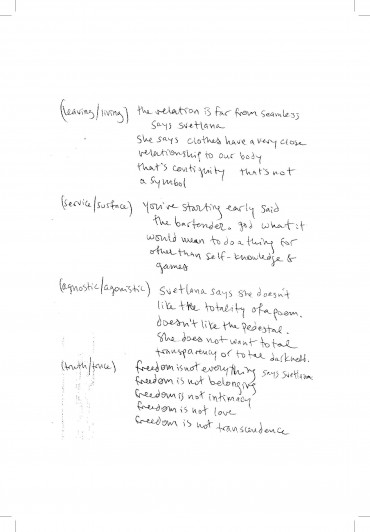 (leaving/living) the relation is far from seamless
says svetlana
she says clothes have a very close
relationship to our body
that's contiguity that's not
a symbol
(service/surface) you're starting early said
the bartender. god what it
would mean to do a thing for
other than self-knowledge &
games
(agnostic/agonistic) svetlana says she doesn't
like the totality of a poem.
doesn't like the pedestal.
she does not want total
transparency or total darkness.
(truth/truce) freedom is not everything says svetlana
freedom is not belonging
freedom is not intimacy
freedom is not love
freedom is not transcendence